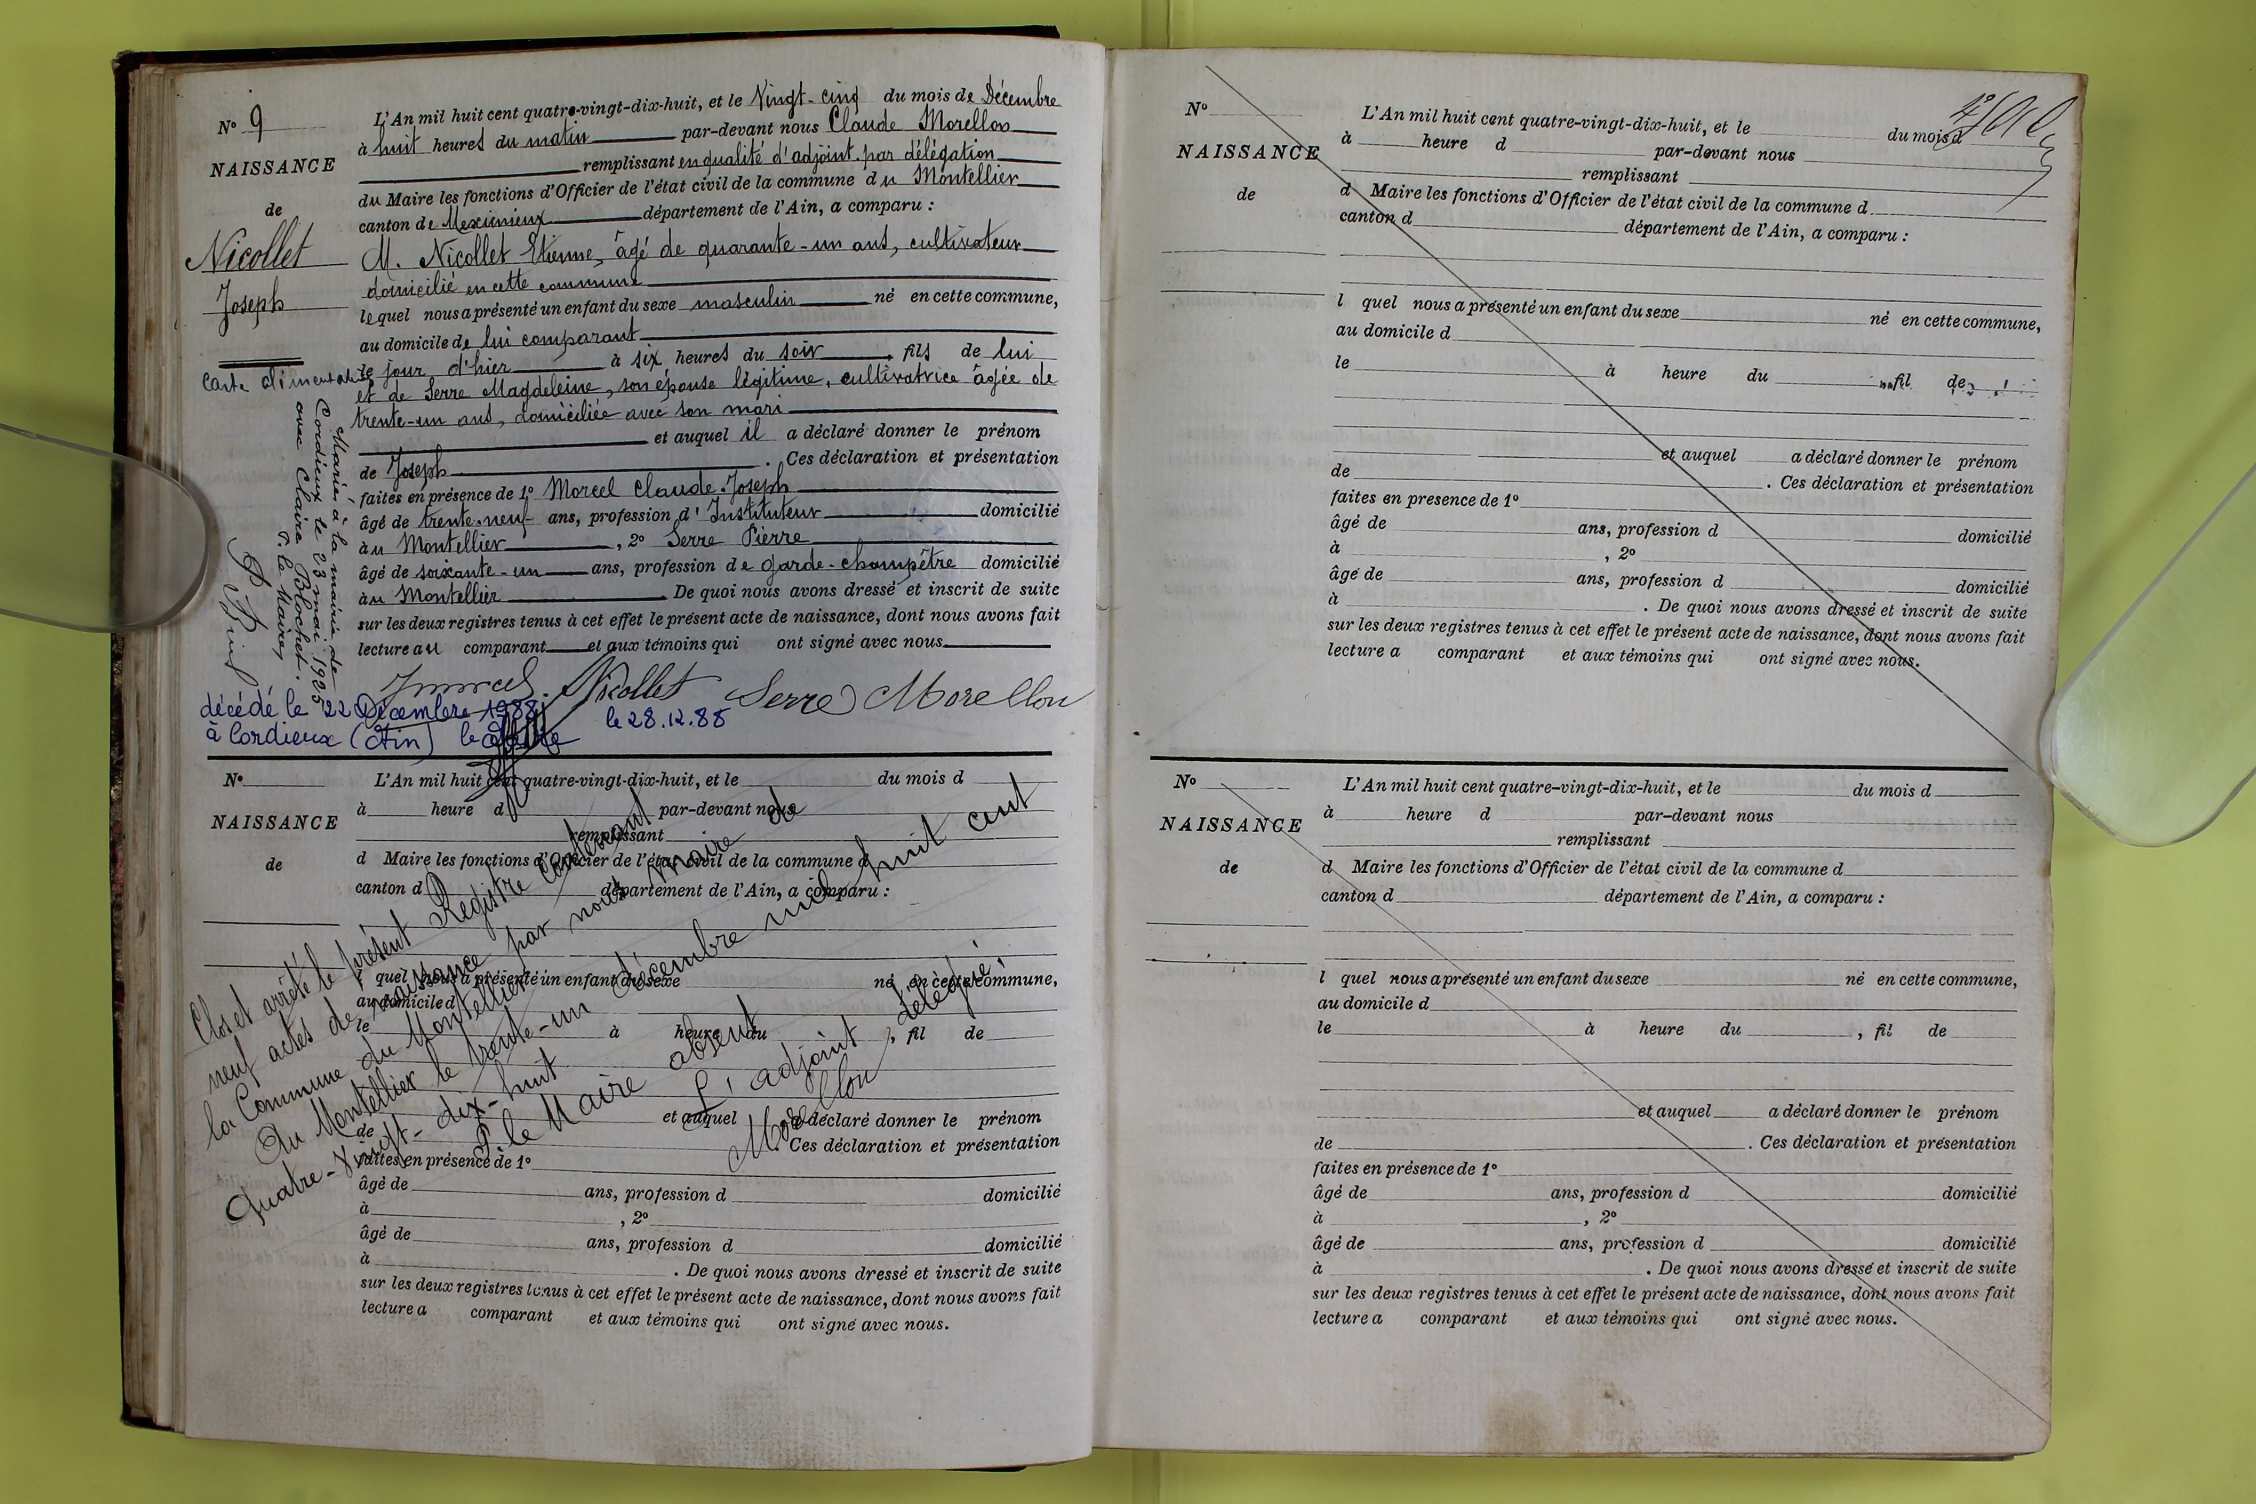 N° 9
NAISSANCE
de
Nicollet
Joseph
Carte alimentation
Marié à la mairie de
Cordieux le 23 mai 1925
avec Claire Blochet.
P. le Maire,
L'An mil huit cent quatre-vingt-dix-huit, et le Vingt-cinq du mois de Décembre
à huit heures du matin par-devant nous Claude Morellon
remplissant en qualité d'adjoint par délégation
du Maire les fonctions d'Officier de l'état civil de la commune du Montellier
canton de Meximieux département de l'Ain, a comparu :
M. Nicollet Etienne, âgé de quarante-un ans, cultivateur
domicilié en cette commune
lequel nous a présenté un enfant du sexe masculin né en cette commune,
au domicile de lui comparant
le jour d'hier à six heures du soir, fils de lui
et de Serre Magdeleine, son épouse légitime, cultivatrice âgée de
trente-un ans, domiciliée avec son mari
et auquel il a déclaré donner le prénom
de Joseph. Ces déclaration et présentation
faites en présence de 1° Morcel Claude-Joseph
âgé de trente-neuf ans, profession d'Instituteur domicilié
au Montellier, 2° Serre Pierre
âgé de soixante-un ans, profession de garde-champêtre domicilié
au Montellier. De quoi nous avons dressé et inscrit de suite
sur les deux registres tenus à cet effet le présent acte de naissance, dont nous avons fait
lecture au comparant et aux témoins qui ont signé avec nous.
Jmorcel. Nicollet Serre Morellon
décédé le 22 Décembre 1988
à Cordieux (Ain) le 28.12.88
N°
NAISSANCE
de
L'An mil huit cent quatre-vingt-dix-huit, et le du mois d
à heure d par-devant nous
remplissant
d Maire les fonctions d'Officier de l'état civil de la commune d
canton d département de l'Ain, a comparu :
l quel nous a présenté un enfant du sexe né en cette commune,
au domicile d
le à heure du , fil de
et auquel a déclaré donner le prénom
de . Ces déclaration et présentation
faites en présence de 1°
âgé de ans, profession d domicilié
à , 2°
âgé de ans, profession d domicilié
à . De quoi nous avons dressé et inscrit de suite
sur les deux registres tenus à cet effet le présent acte de naissance, dont nous avons fait
lecture a comparant et aux témoins qui ont signé avec nous.
Clos et arrêté le présent Registre contenant
neuf actes de naissance par nous Maire de
la Commune du Montellier
Au Montellier le trente-un décembre mil huit cent
Quatre-vingt-dix-huit
P. le Maire absent
L'adjoint délégué,
Morellon
N°
NAISSANCE
de
L'An mil huit cent quatre-vingt-dix-huit, et le du mois d
à heure d par-devant nous
remplissant
d Maire les fonctions d'Officier de l'état civil de la commune d
canton d département de l'Ain, a comparu :
l quel nous a présenté un enfant du sexe né en cette commune,
au domicile d
le à heure du , fil de
et auquel a déclaré donner le prénom
de . Ces déclaration et présentation
faites en presence de 1°
âgé de ans, profession d domicilié
à , 2°
âgé de ans, profession d domicilié
à . De quoi nous avons dressé et inscrit de suite
sur les deux registres tenus à cet effet le présent acte de naissance, dont nous avons fait
lecture a comparant et aux témoins qui ont signé avec nous.
N°
NAISSANCE
de
L'An mil huit cent quatre-vingt-dix-huit, et le du mois d
à heure d par-devant nous
remplissant
d Maire les fonctions d'Officier de l'état civil de la commune d
canton d département de l'Ain, a comparu :
l quel nous a présenté un enfant du sexe né en cette commune,
au domicile d
le à heure du , fil de
et auquel a déclaré donner le prénom
de . Ces déclaration et présentation
faites en présence de 1°
âgé de ans, profession d domicilié
à , 2°
âgé de ans, profession d domicilié
à . De quoi nous avons dressé et inscrit de suite
sur les deux registres tenus à cet effet le présent acte de naissance, dont nous avons fait
lecture a comparant et aux témoins qui ont signé avec nous.